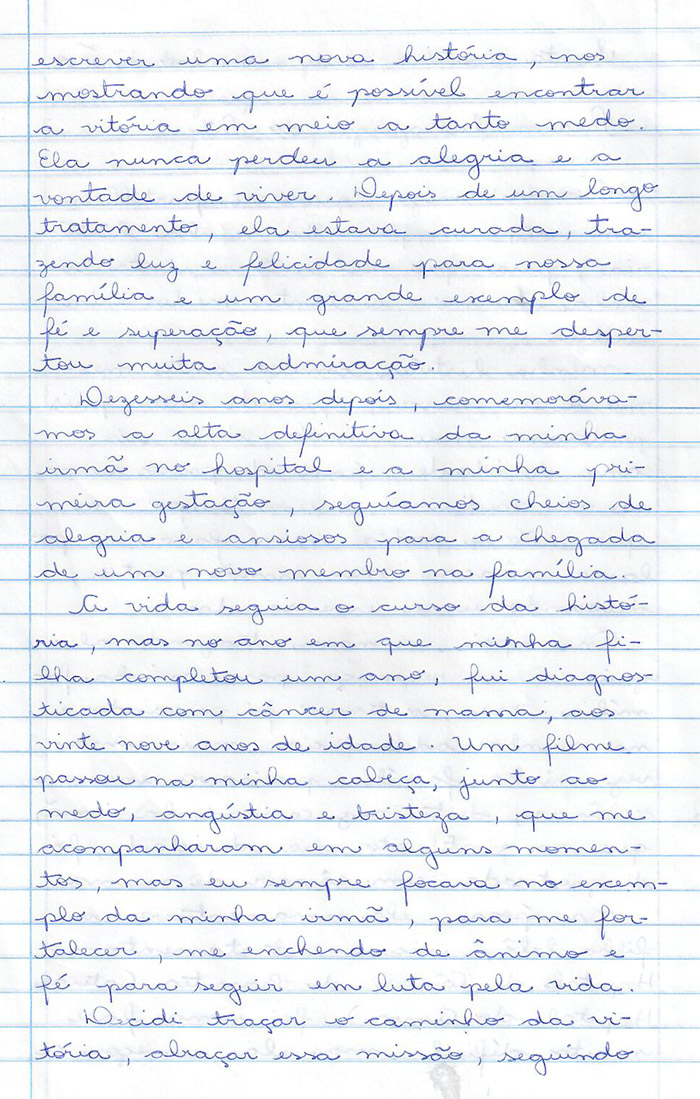 escrever uma nova história, nos
mostrando que é possível encontrar
a vitória em meio a tanto medo.
Ela nunca perdeu a alegria e a
vontade de viver. Depois de um longo
tratamento, ela estava curada, tra-
zendo luz e felicidade para nossa
família e um grande exemplo de
fé e superação, que sempre me desper-
tou muita admiração.
Dezesseis anos depois, comemoráva-
mos a alta definitiva da minha
irmã no hospital e a minha pri-
meira gestação, seguíamos cheios de
alegria e ansiosos para a chegada
de um novo membro na família.
A vida seguia o curso da histó-
ria, mas no ano em que minha fi-
lha completou um ano, fui diagnos-
ticada com câncer de mama, aos
vinte nove anos de idade. Um filme
passou na minha cabeça, junto ao
medo, angústia e tristeza, que me
acompanharam em alguns momen-
tos, mas eu sempre focava no exem-
plo da minha irmã, para me for-
talecer, me enchendo de ânimo e
fé para seguir em luta pela vida.
Decidi traçar o caminho da vi-
tória, abraçar essa missão, seguindo